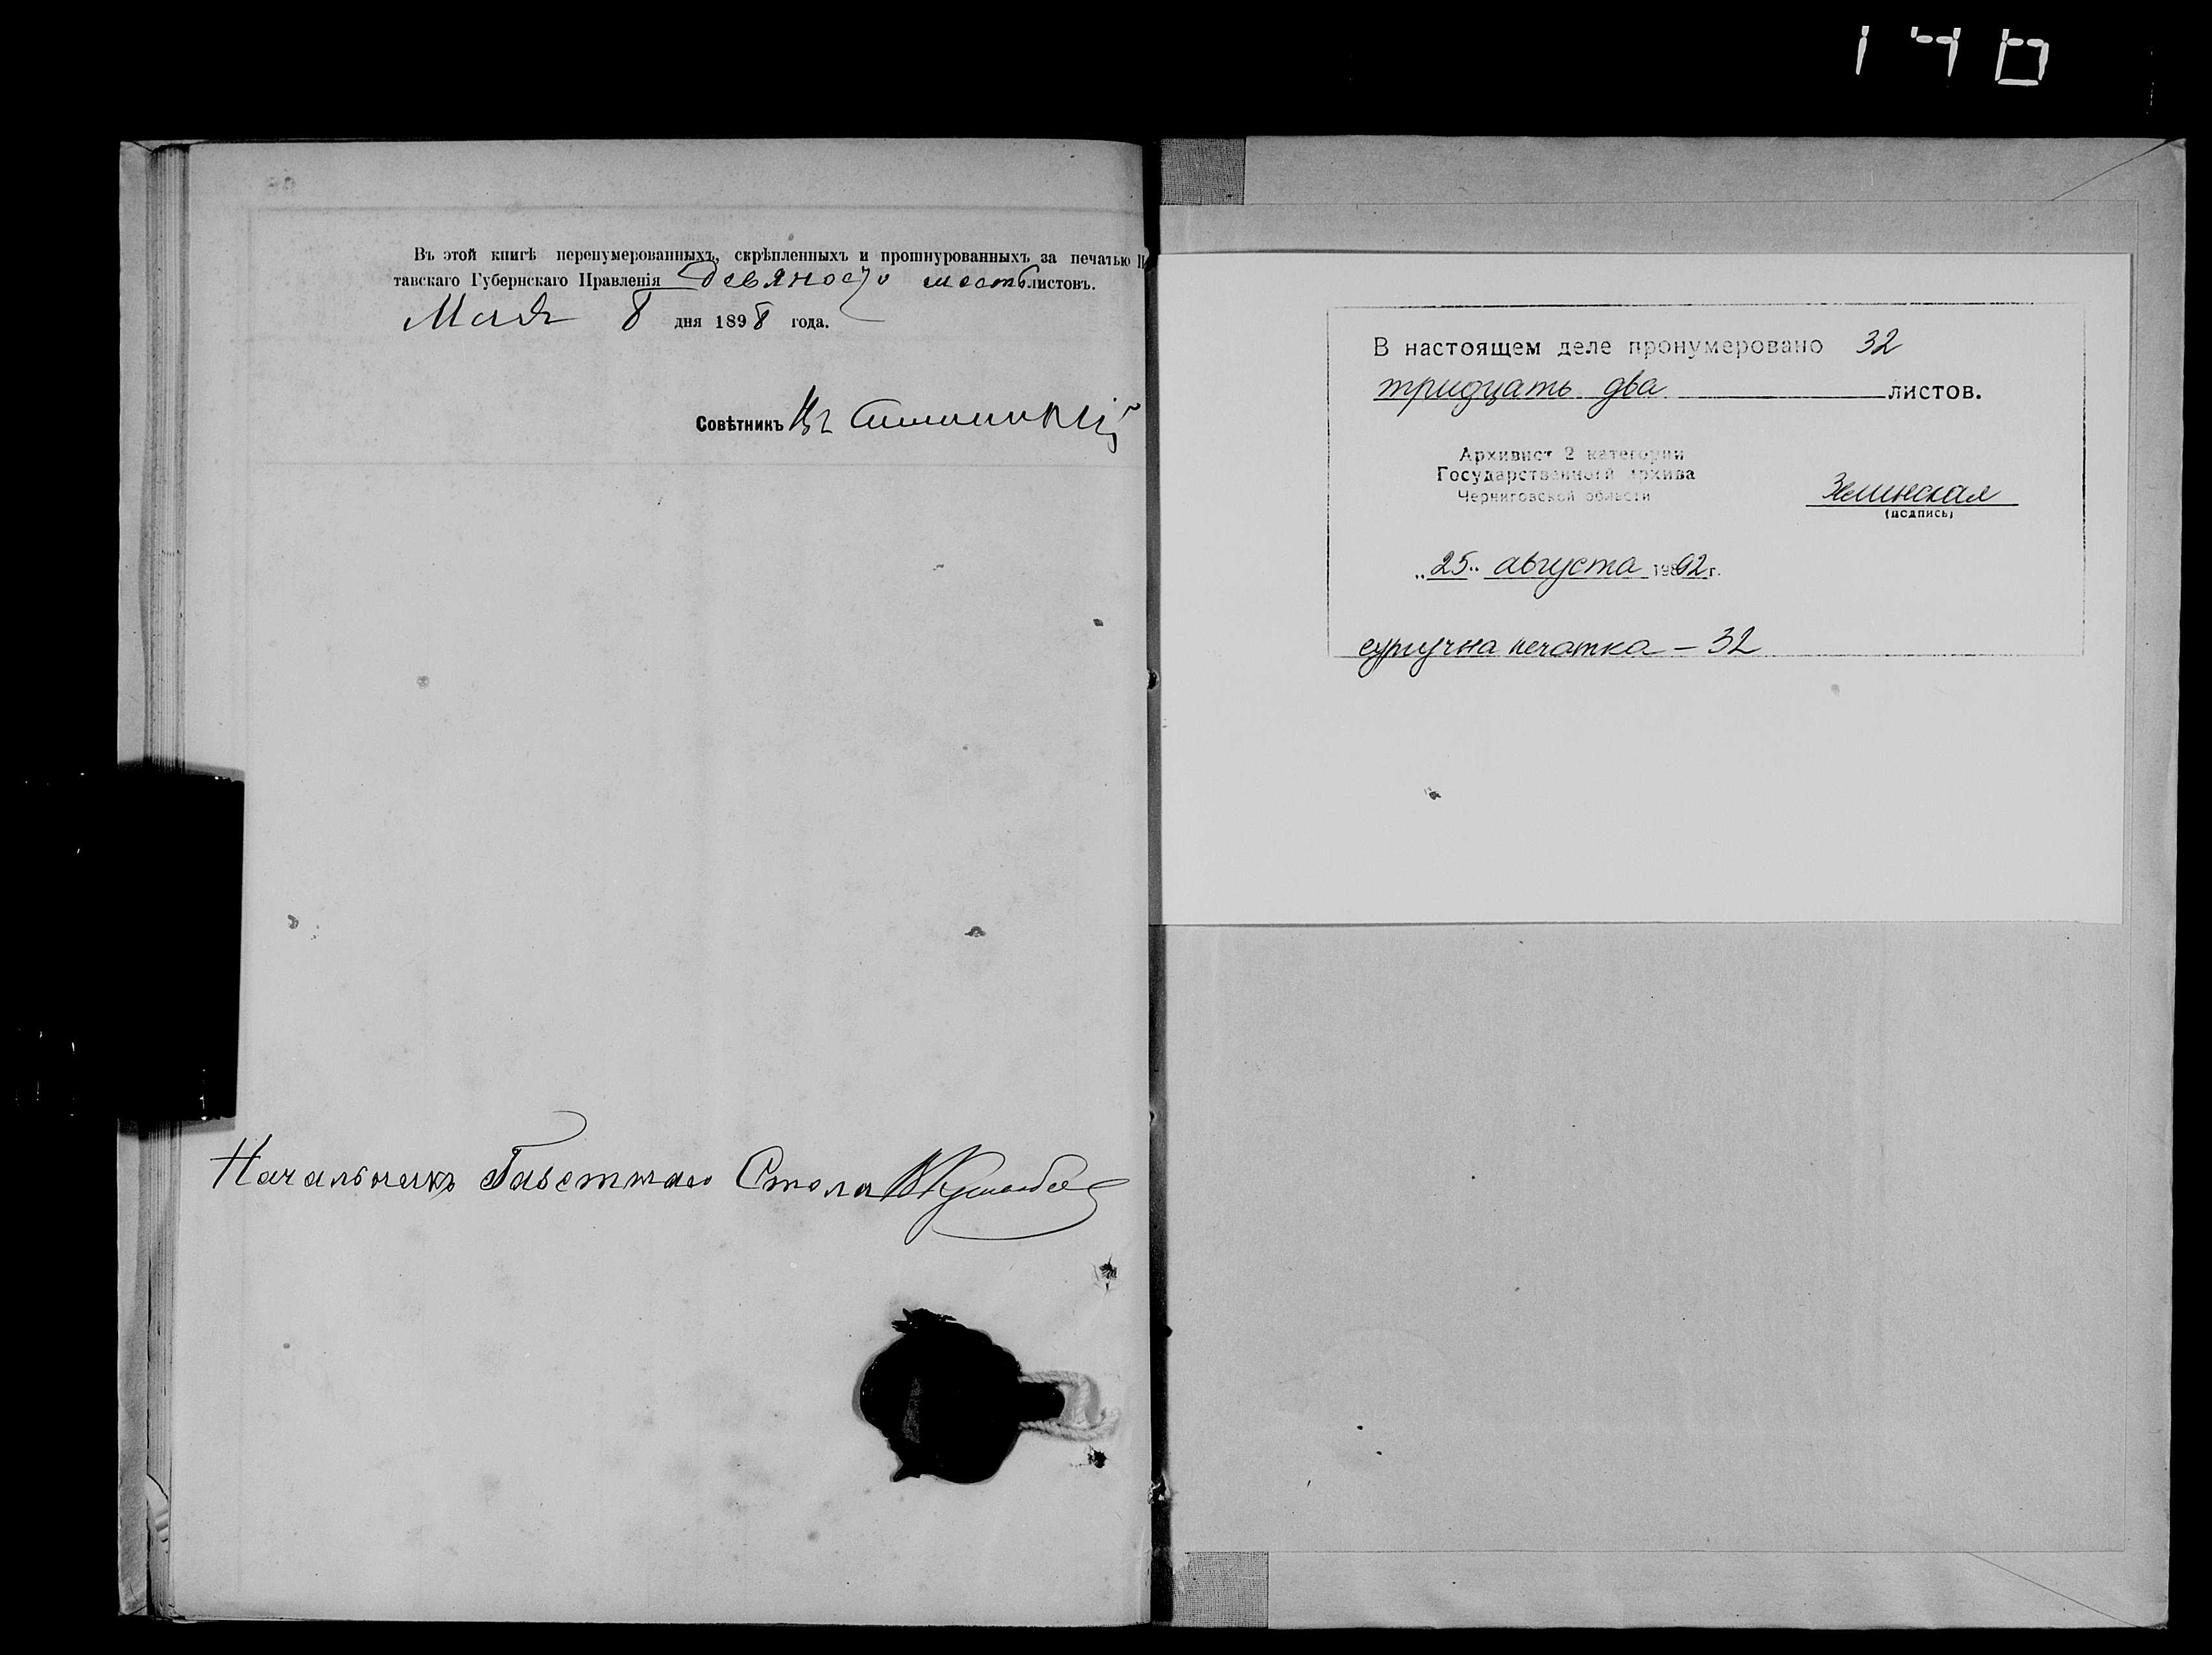 Въ этой книгѣ перенумерованныхъ, скрѣпленныхъ и прошнурованныхъ за печатью П
тавскаго Губернскаго Правленія девяносто шесть листовъ.
Мая 8 дня 1898 года.
Совѣтникъ
Начальникъ Газетнаго Стола
В настоящем деле пронумеровано 32
тридцать два листов.
Архивист 2 категории
Государственного архива
Черниговской области
(подпись)
„25„ августа 1992 г.
сургучна печатка – 32